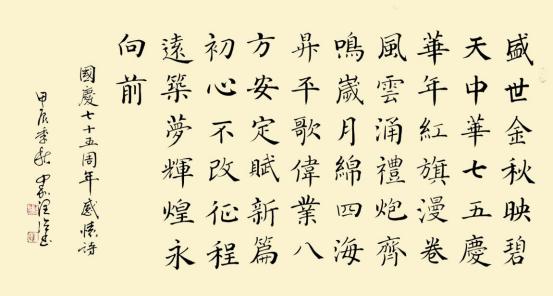 盛世金秋映碧
天中華七五慶
華年紅旗漫卷
風雲涌禮炮齊
鳴嵗月綿四海
昇平歌偉業八
方安定賦新篇
初心不改征程
遠築夢輝煌永
向前
國慶七十五周年感懷詩
甲辰季秋